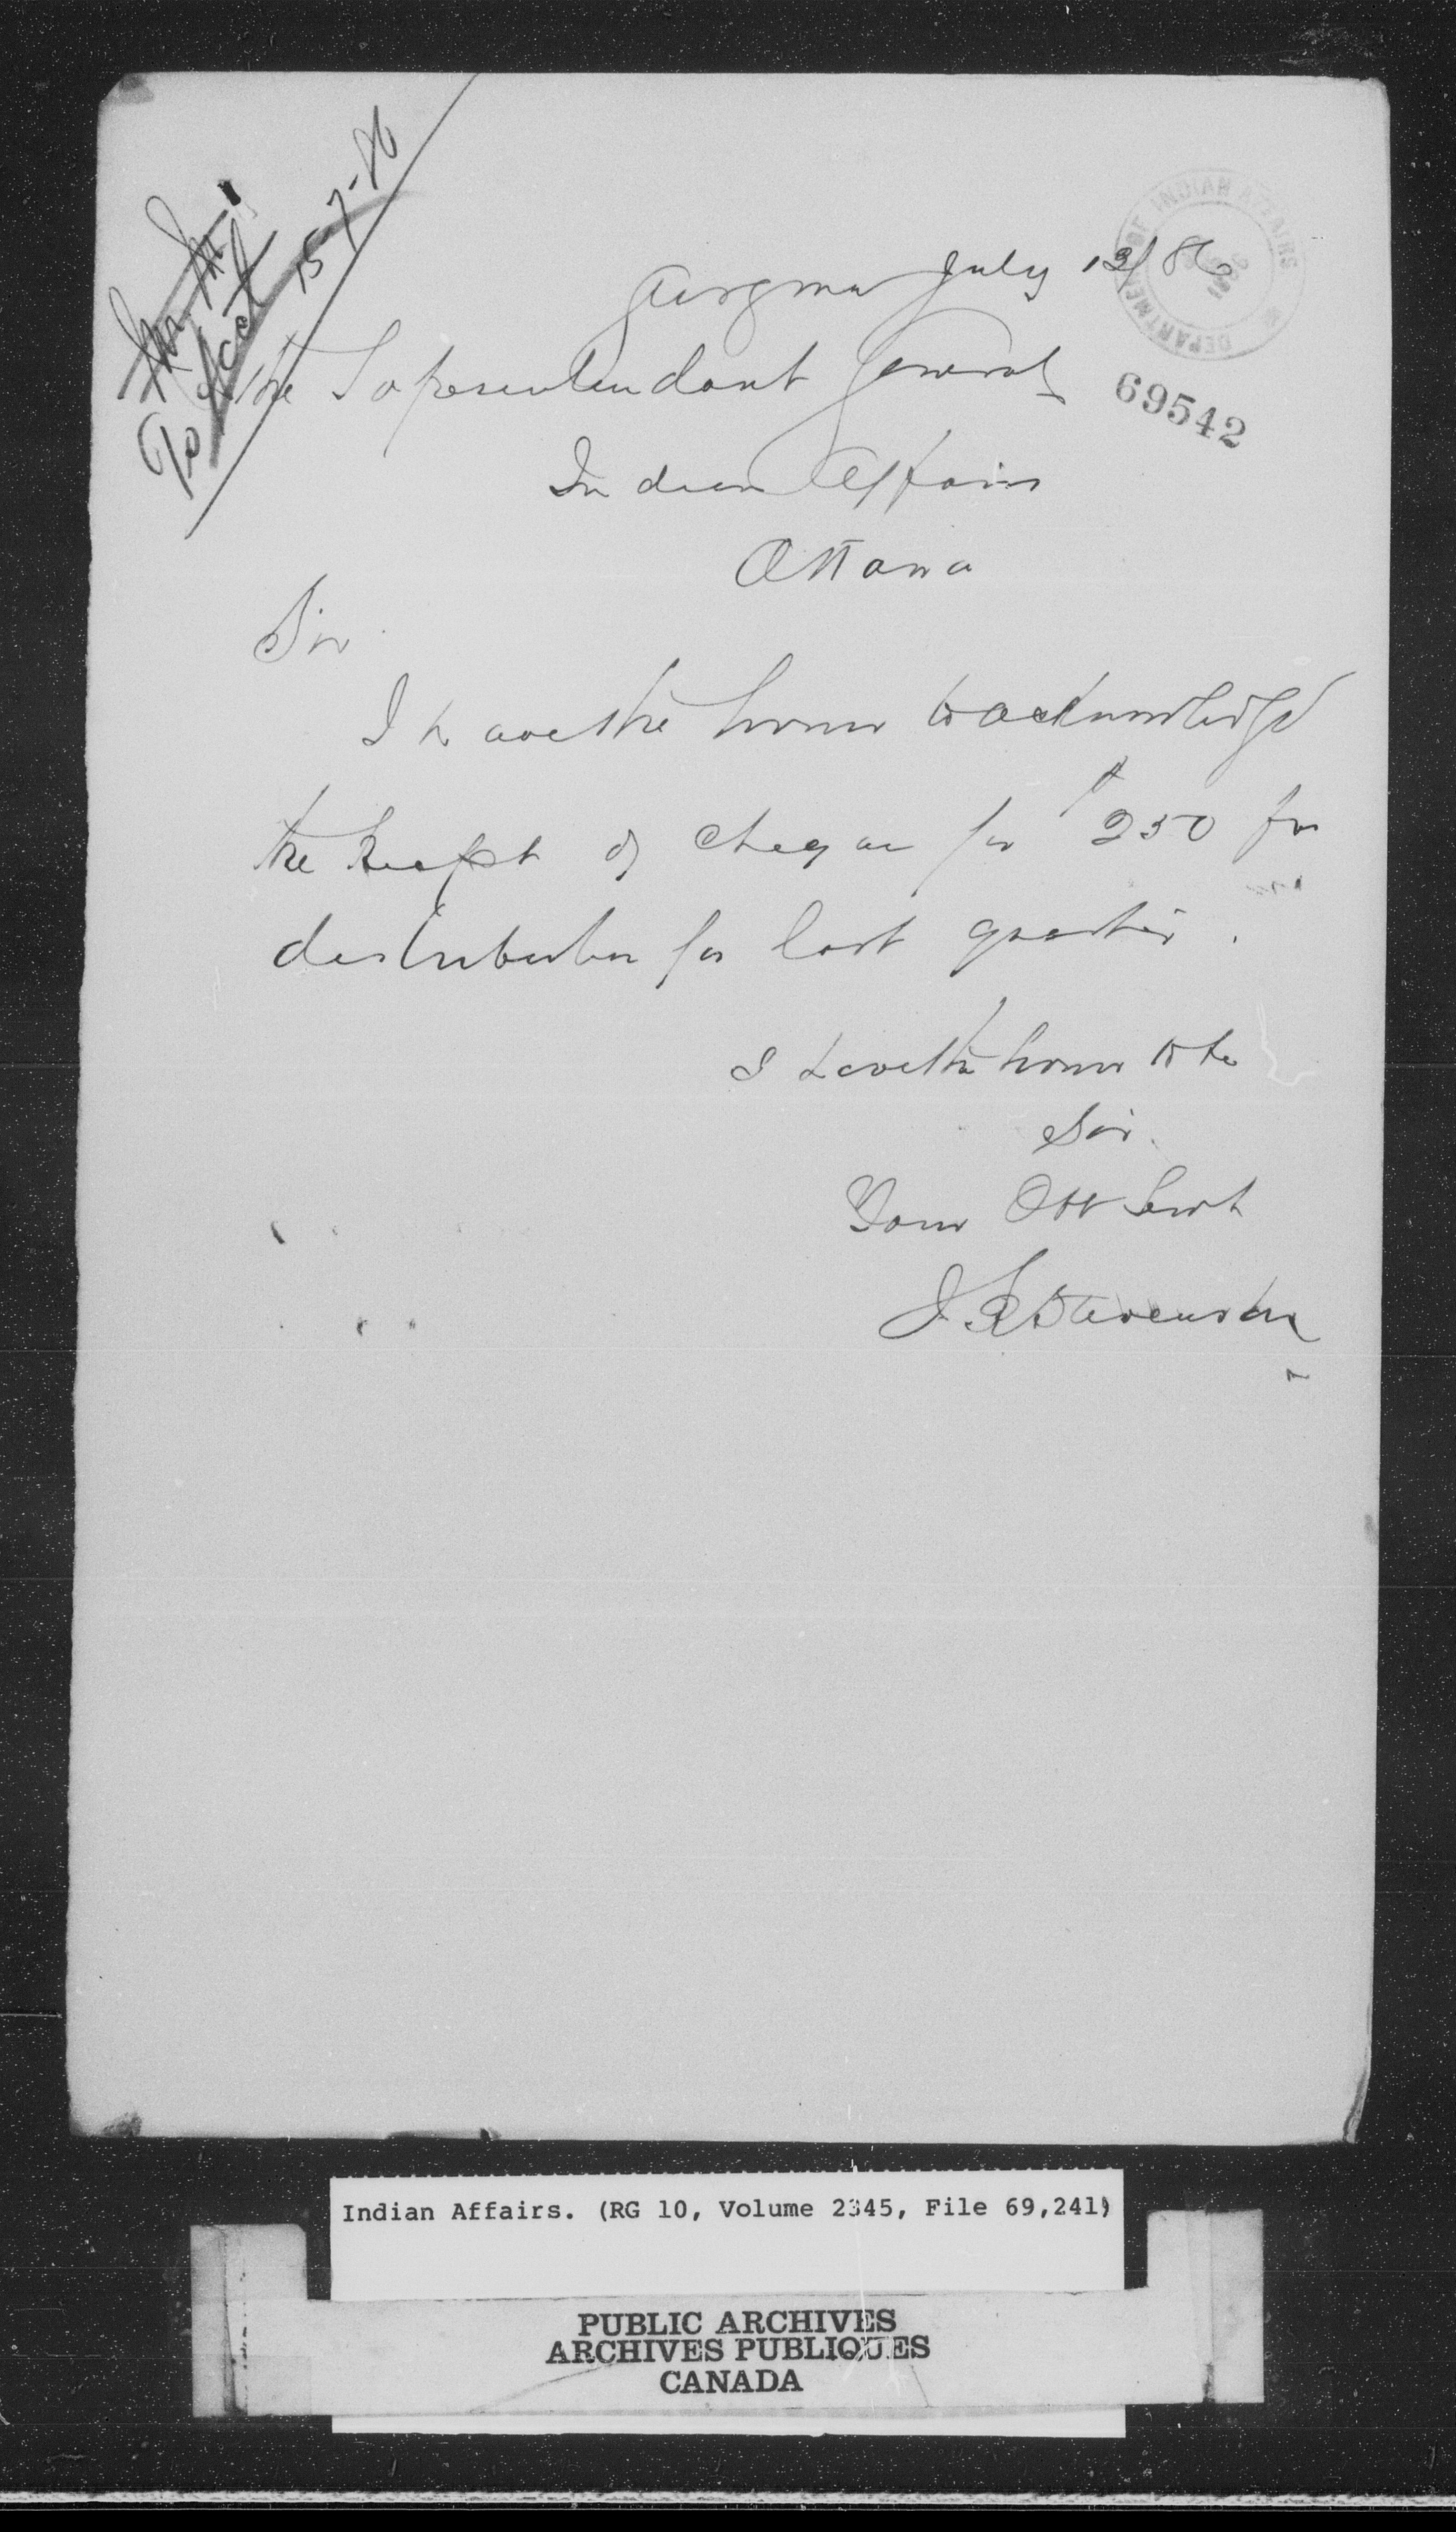 To Acct 15-7-86
DEPARTMENT OF INDIAN AFFAIRS
July 13/86
69542
The Superintendant General
Indian Affairs
Ottawa
Sir
I have the honor to acknowledge
the receipt of cheque for $250 for
distribution for last quarter.
I have the honor to be
Sir.
Your Obt Servt
J Stevenson
Indian Affairs. (RG 10, Volume 2345, File 69,241)
PUBLIC ARCHIVES
ARCHIVES PUBLIQUES
CANADA